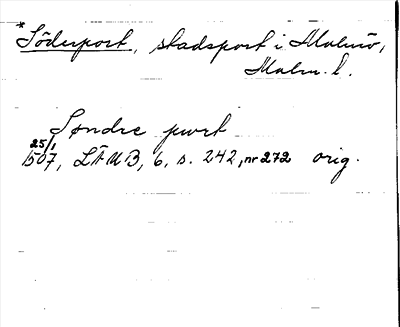 * Söderport, stadsport i Malmö,
Malm. l.
Søndre port
25/1
1507, LÄUB, 6, s. 242, nr 272 orig.